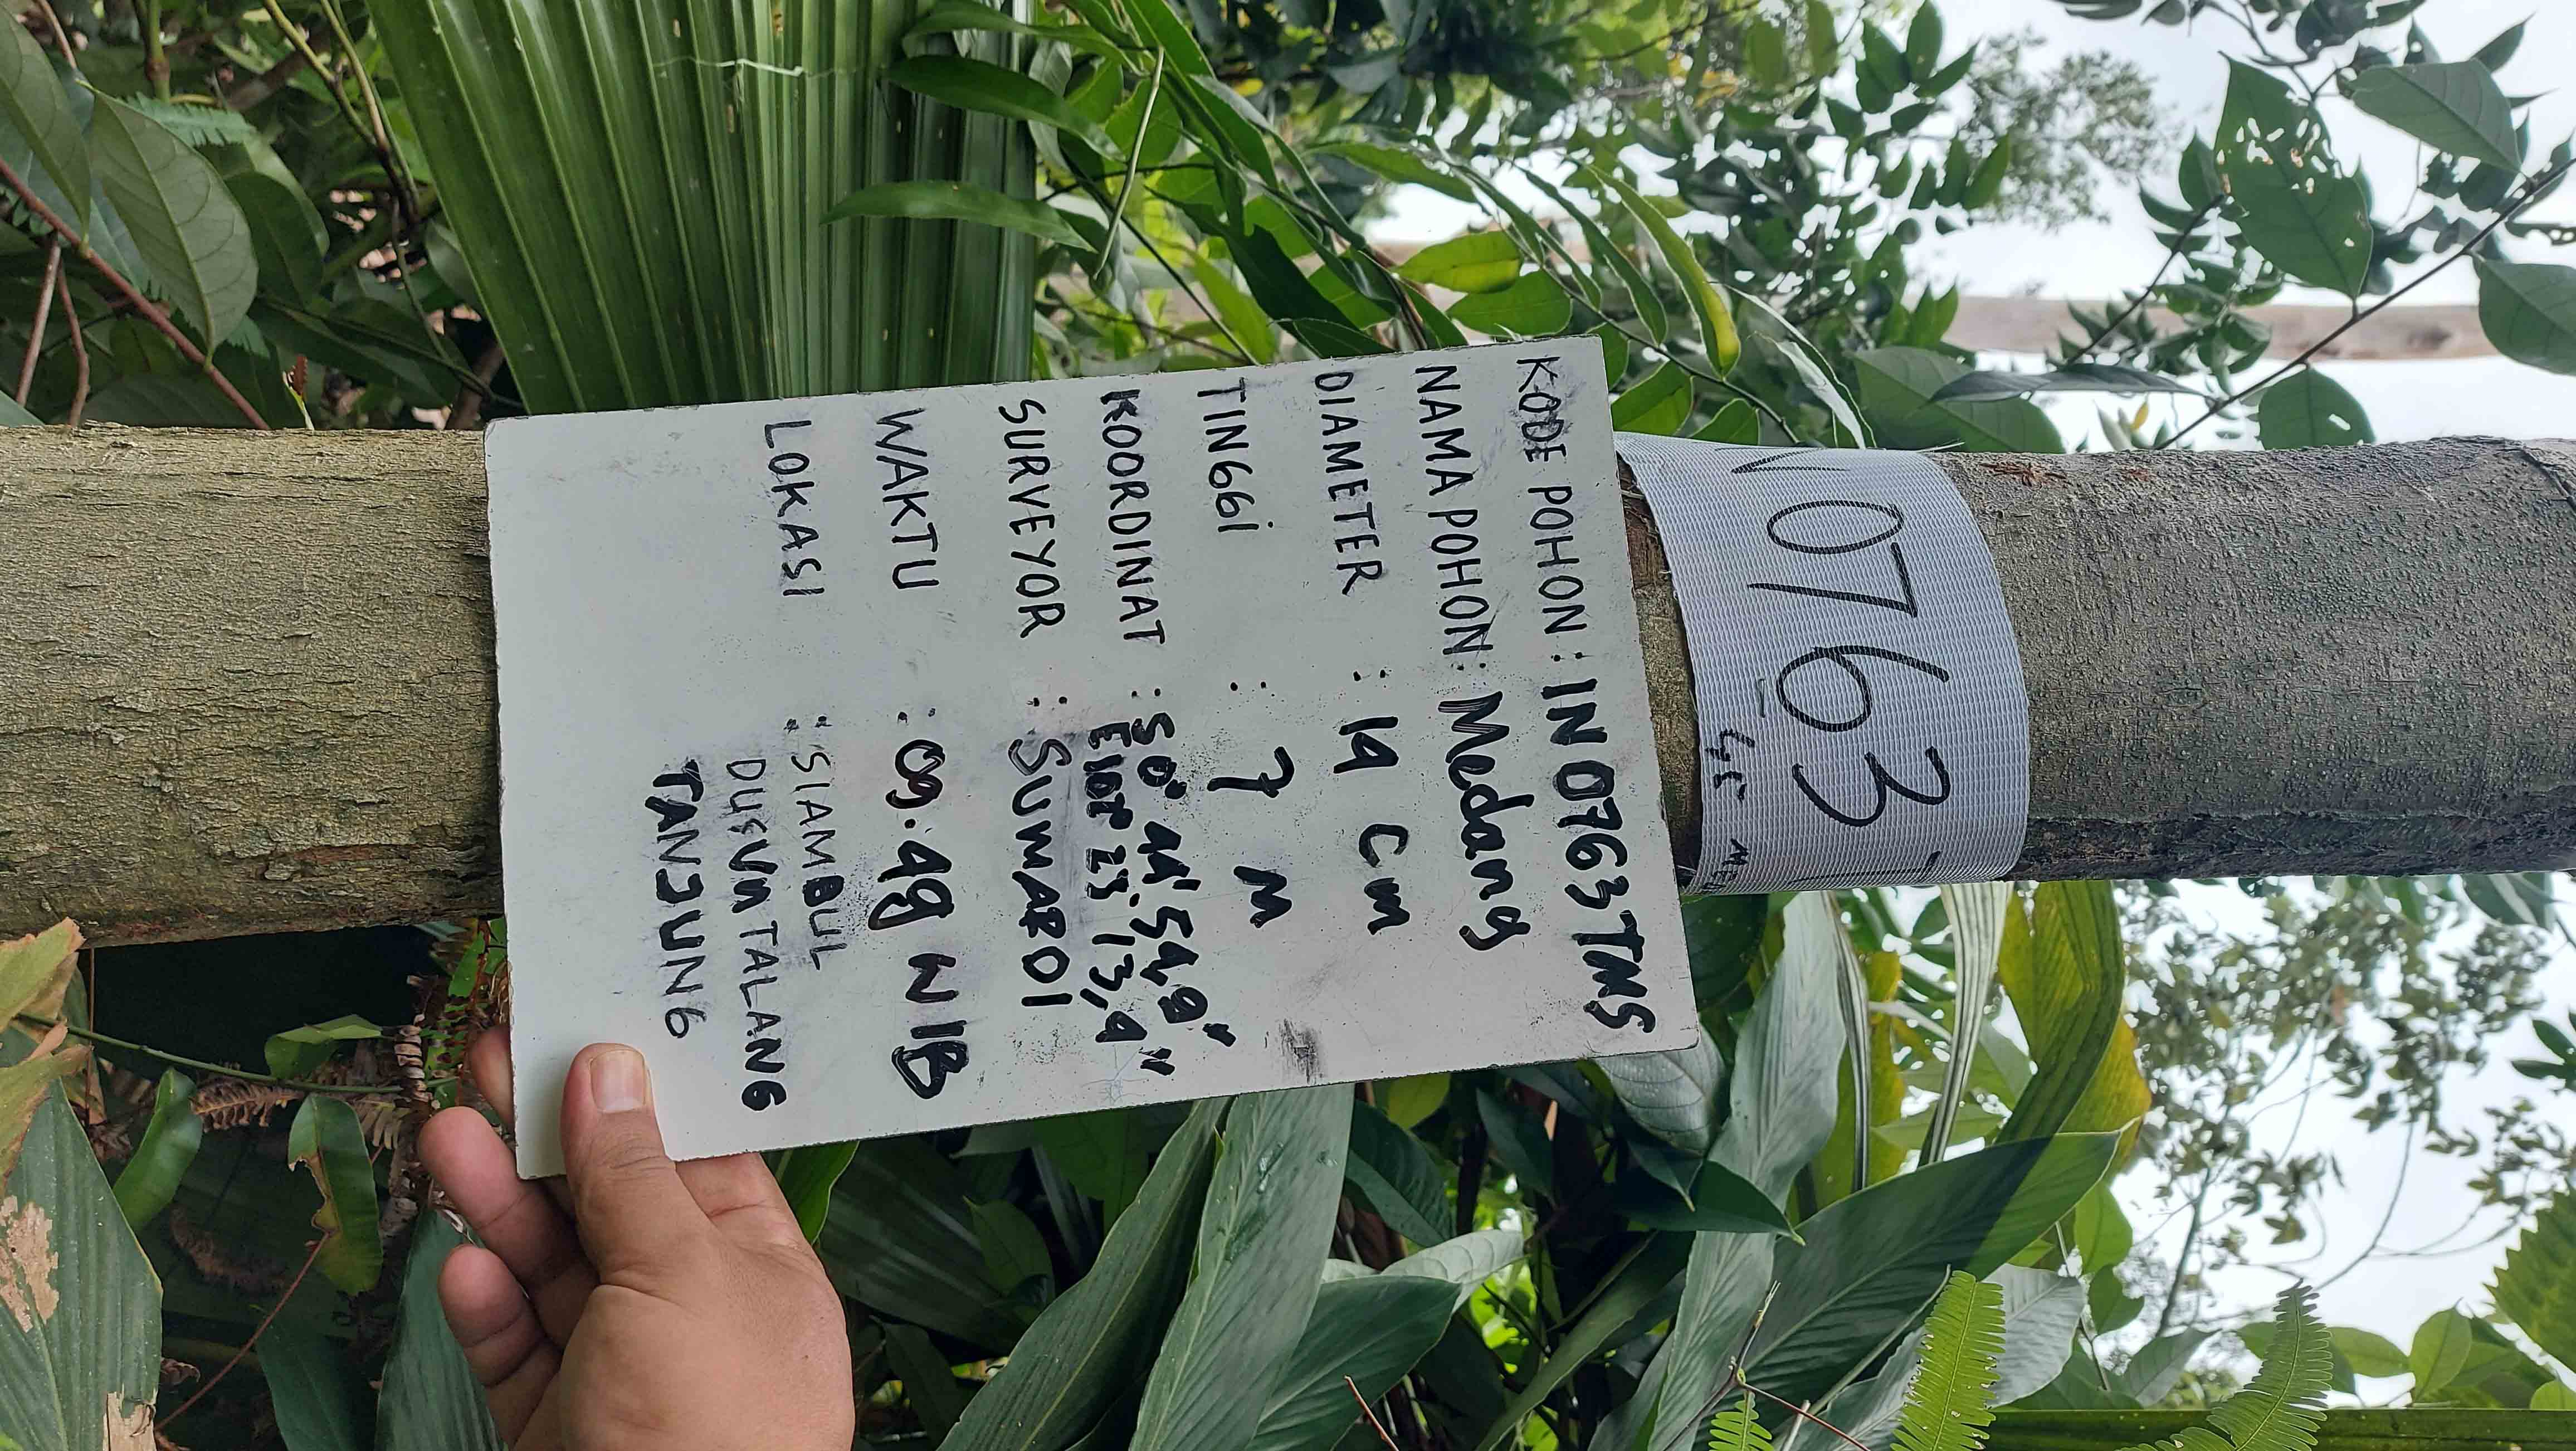 0763
45
KODE POHON : IN0763TMS
NAMA POHON : Medang
DIAMETER : 14 cm
TINGGi : 7 m
KOORDINAT : S0° 44'. 54,9"
SURVEYOR : SUMARDI
WAKTU : 09.49 WIB
LOKASI : SIAMBUL
DUSUN TALANG
TANJUNG